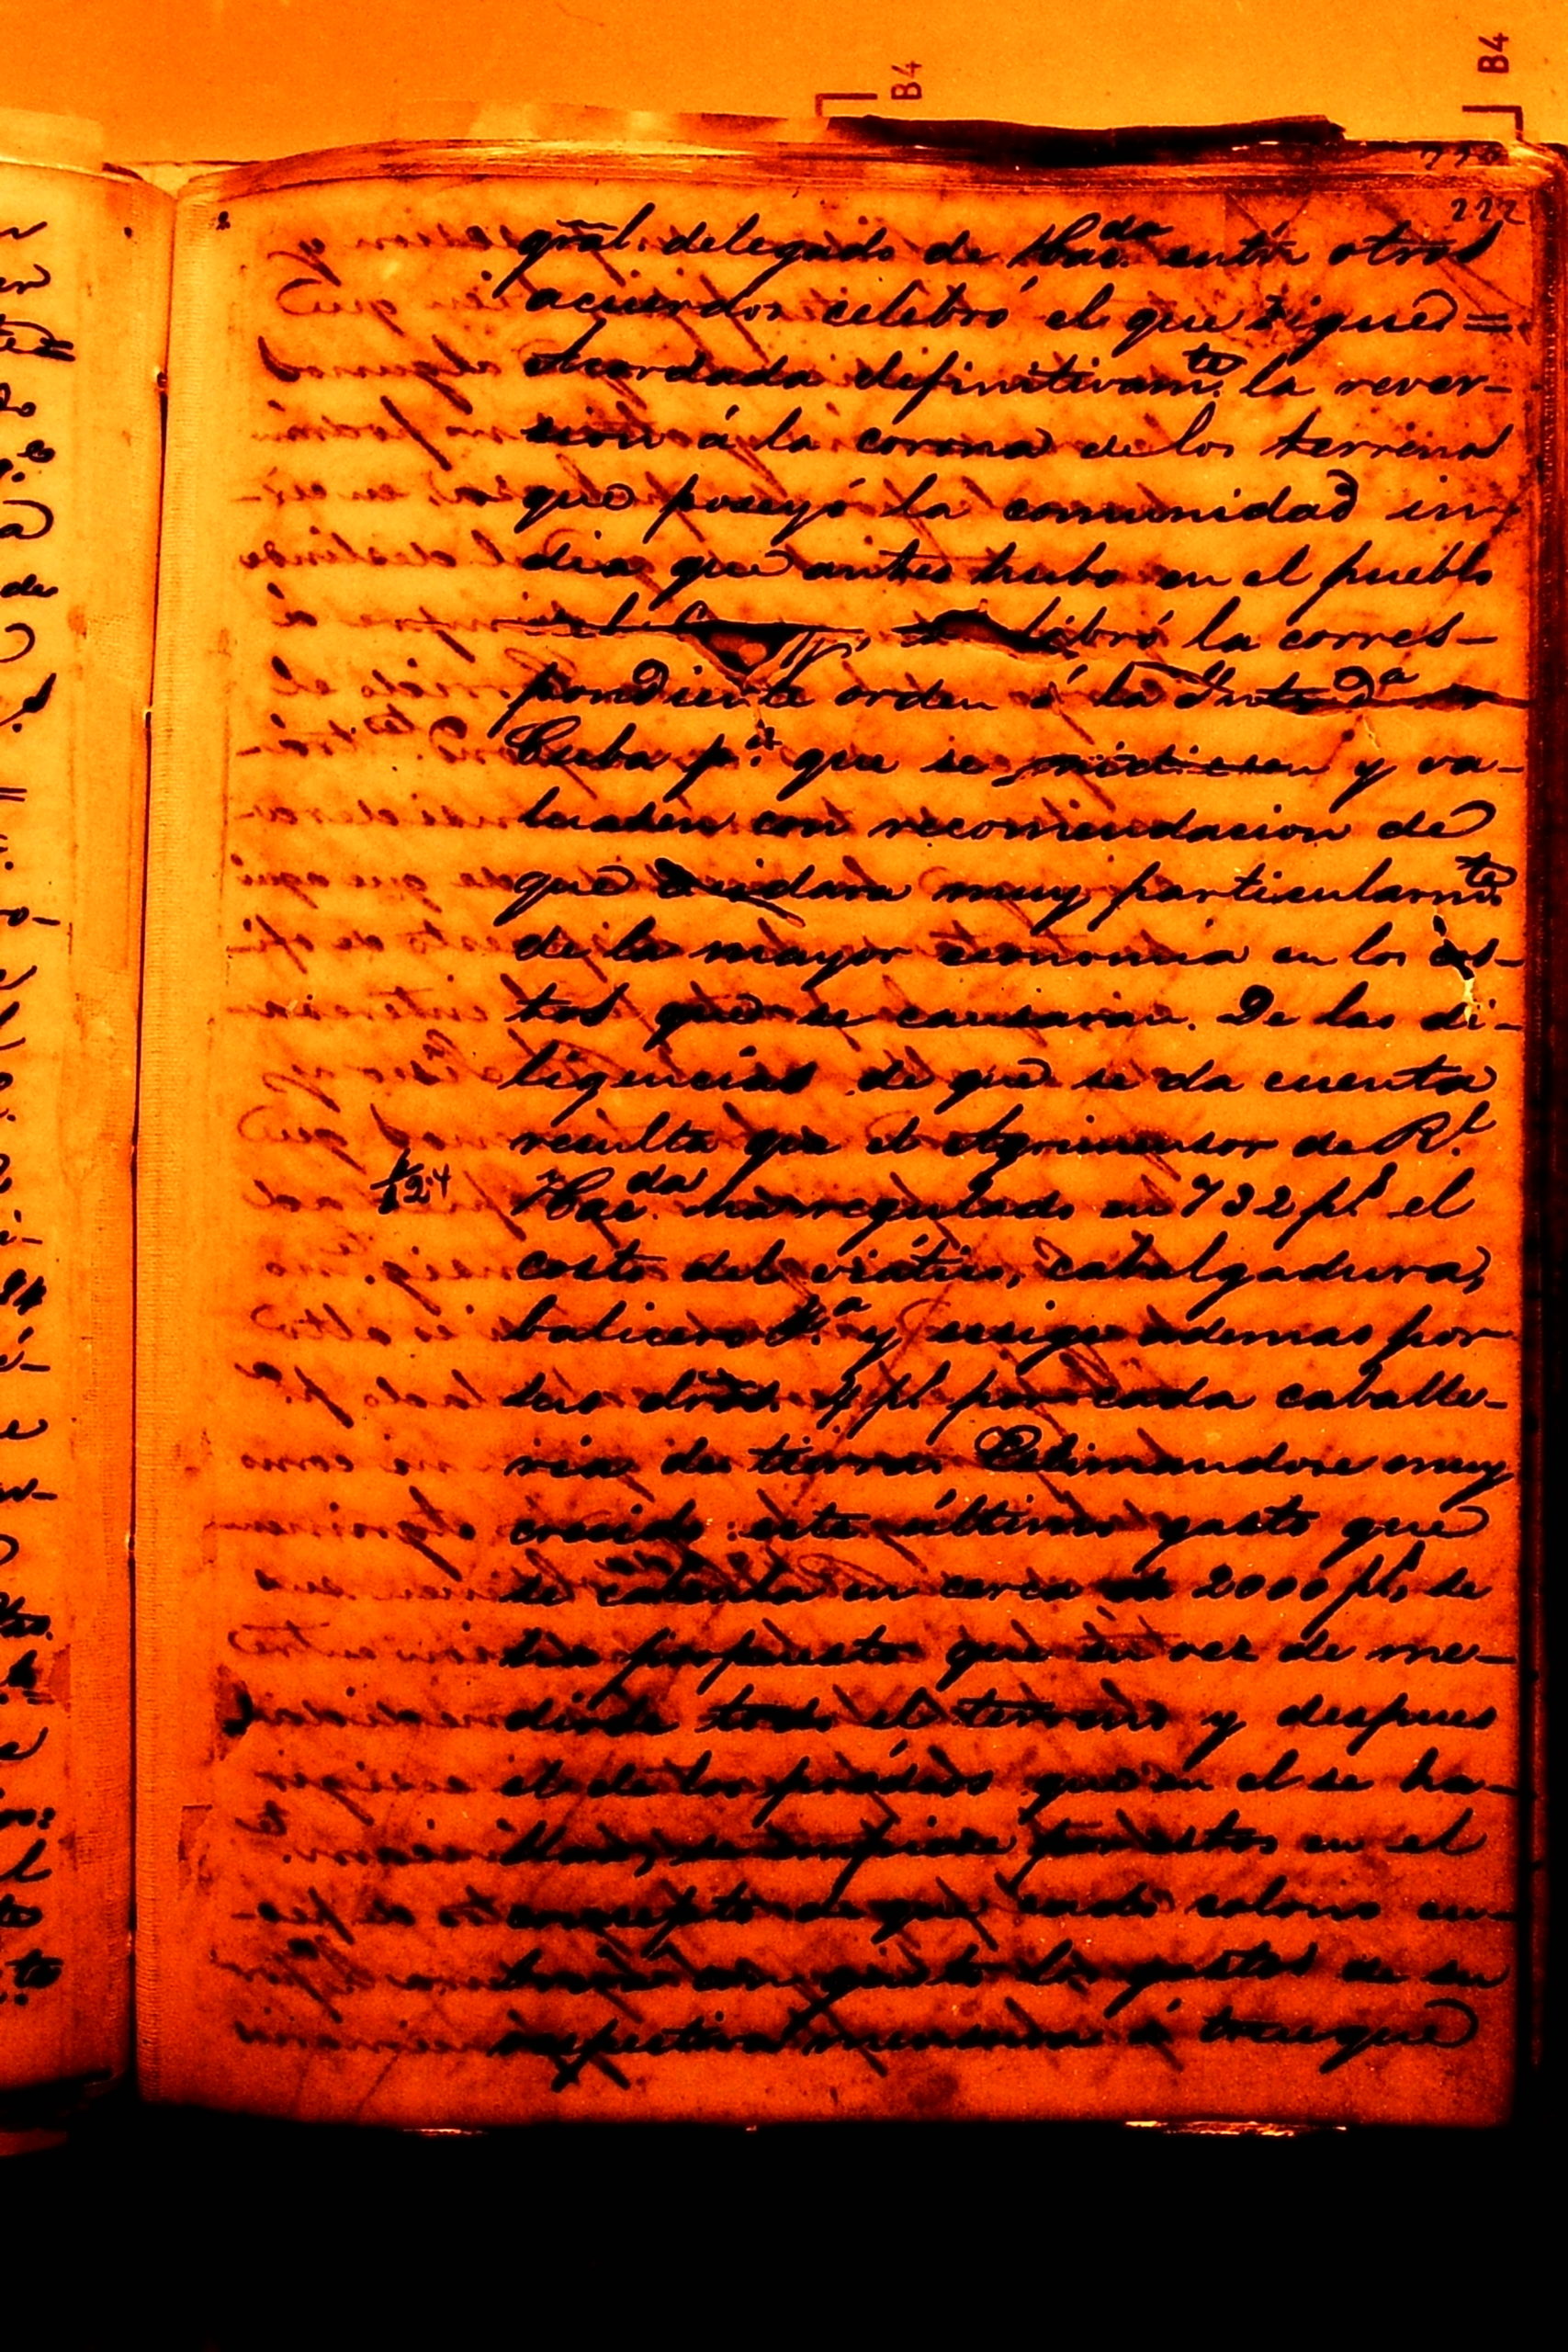 B4
B4
222
gral. delegado de Hac.da entre otros
acuerdos celebró el que sigue =
Acordada definitivam.te la rever-
sion á la corona de los terrenos
que poseyó la comunidad in-
dia que antes hubo en el pueblo
libró la corres-
pondiente orden á la Intend.a de
Cuba p.a que se midiesen y va-
luasen con recomendacion de
que cuidara muy particularm.te
de la mayor economia en los cos-
tos que se causaran. De las di-
ligencias de que se da cuenta
resulta que el Agrimensor de R.l
Hac.da ha regulado en 732 p.s el
costo del viático, cabalgadura,
balicero &.a y exige ademas por
sus dros. 4 p.s por cada caballe-
ria de tierra. Estimandose muy
crecido este último gasto que
se calcula en cerca de 2000 p.s se
ha propuesto que en vez de me-
dirse todo el terreno y despues
el de los predios que en el se ha-
llan, se empiece por estos en el
concepto de que cada colono
los gastos de su
respectiva mensura á trueque